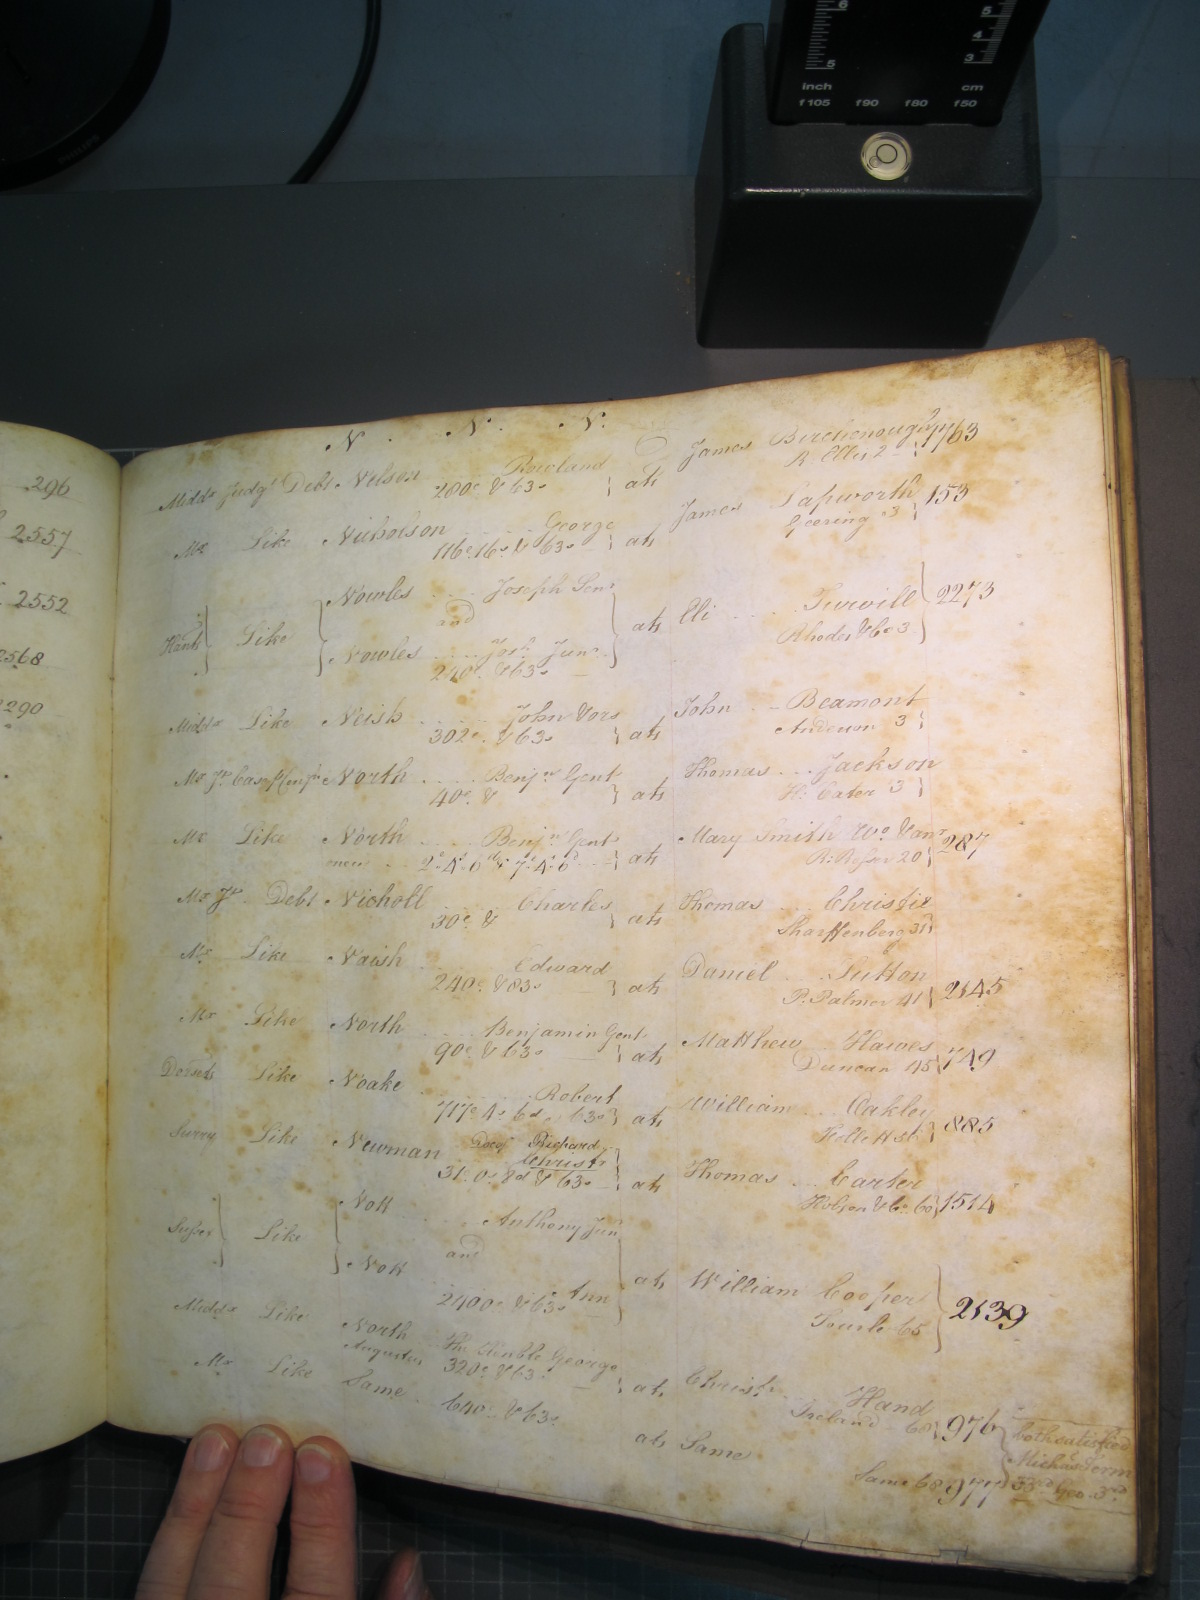 6 5
4
5 3
inch cm
f105 f90 f80 f50
PHILIPS
296
2557
2552
2568
2290
N. N. N.
Midd.x Judg.t Debt. Nelson Rowland at James Birchenough 1763
280£ & 63s R. Ellis 2
Mx Like Nicholson George at James Papworth 153
116£.16s & 63s Geering 3
Nowles Joseph Sen.r
Hants Like and at Eli Turvill 2273
Nowles Jos.h Jun.r Rhodes &c 3
63s
Midd.x Like Neish John Vors at John Beamont
302£ & 63s Anderson 3
Mx North Benj.n Gent at Thomas Jackson
40£ & H. Eater 3
Mx Like North Benj.n Gent at Mary Smith Wo 287
2.4.6 & 7.4.6 20
Mx J.t Debt Nicholl Charles at Thomas Christie
30£ & Sharffenberg 31
Mx Like Naish Edward at Daniel Sutton 2145
240£ & 83s P. Palmer 41
Mx Like North Benjamin Gent at Matthew Hawes 749
90£ & 63s Duncan 45
Dorset Like Noake Robert at William Oakley 885
717£ 4s 6d 63s
Surry Like Newman Richard at Thomas Carter 1514
Christ.r
31.0.8d & 63s Hobson &c. 60
Nott Anthony Jun
Sussex Like and at William Cooper 2139
Nott Ann Sourle 65
2400£ & 63s
Midd.x Like North The Hon.ble George at Christ.r Hand 976
Augustus 320£ & 63s Ireland 68
Mx Like Same at Same
640£ & 63s Same 68 977
both satisfied
Mich.s Term
33.rd Geo. 3.rd